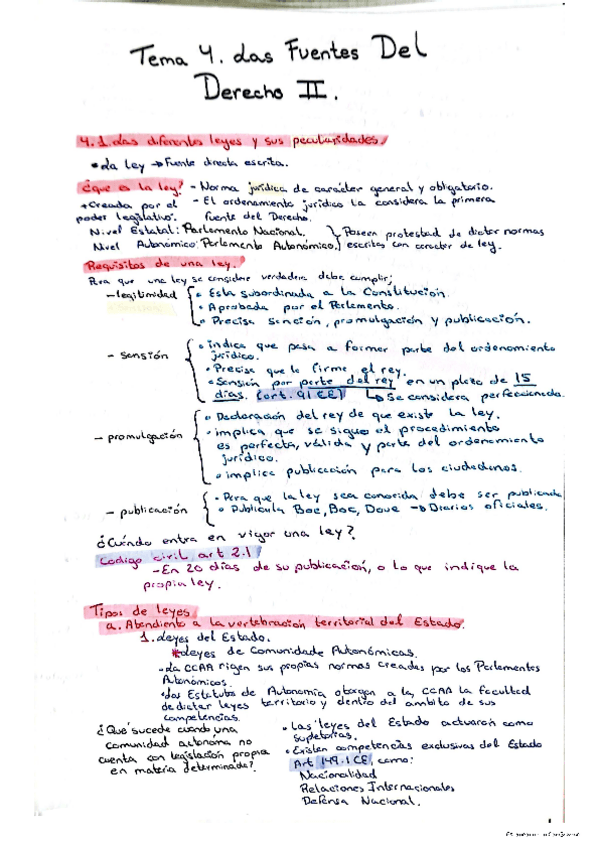 Tema 4. Las Fuentes Del
Derecho II.
4.1. Las diferentes leyes y sus peculiaridades.
• La ley → Fuente directa escrita.
¿Qué es la ley? - Norma jurídica de carácter general y obligatorio.
→ Creada por el poder legislativo. - El ordenamiento jurídico la considera la primera
fuente del Derecho.
Nivel Estatal: Parlamento Nacional.
Nivel Autonómico: Parlamento Autonómico.
Poseen protestad de dictar normas
escritas con carácter de ley.
Requisitos de una ley.
Para que una ley se considere verdadera debe cumplir;
- legitimidad
• Esta subordinada a la Constitución.
• Aprobada por el Parlamento.
• Precisa sanción, promulgación y publicación.
- Sansión
• indica que pasa a formar parte del ordenamiento
jurídico.
• Precisa que lo firme el rey.
• Sansión por parte del rey en un plazo de 15
días. (art. 91 CE) ↳ Se considera perfeccionada.
- promulgación
• Declaración del rey de que existe la ley.
• implica que se sigue el procedimiento
es perfecta, válida y parte del ordenamiento
jurídico.
• implica publicación para los ciudadanos.
- publicación
• Para que la ley sea conocida debe ser publicada
• Publicula Boe, Boc, Doue → Diarios oficiales.
¿Cuándo entra en vigor una ley?
Código civil art 2.1
- En 20 días de su publicación, o lo que indique la
propia ley.
Tipos de leyes
a. Atendiento a la vertebración territorial del Estado.
1. Leyes del Estado.
* Leyes de Comunidade Autonómicas.
• La CCAA rigen sus propias normas creadas por los Parlamentos
Autonómicos.
• Los Estatutos de Autonomía otorgan a la CCAA la facultad
de dictar leyes territorio y dentro del ámbito de sus
competencias.
¿Qué sucede cuando una
comunidad autónoma no
cuenta con legislación propia
en materia determinada?
• Las leyes del Estado actuaron como
supletorias.
• Existen competencias exclusivas del Estado
Art 149.1 CE, como:
Nacionalidad
Relaciones Internacionales
Defensa Nacional.